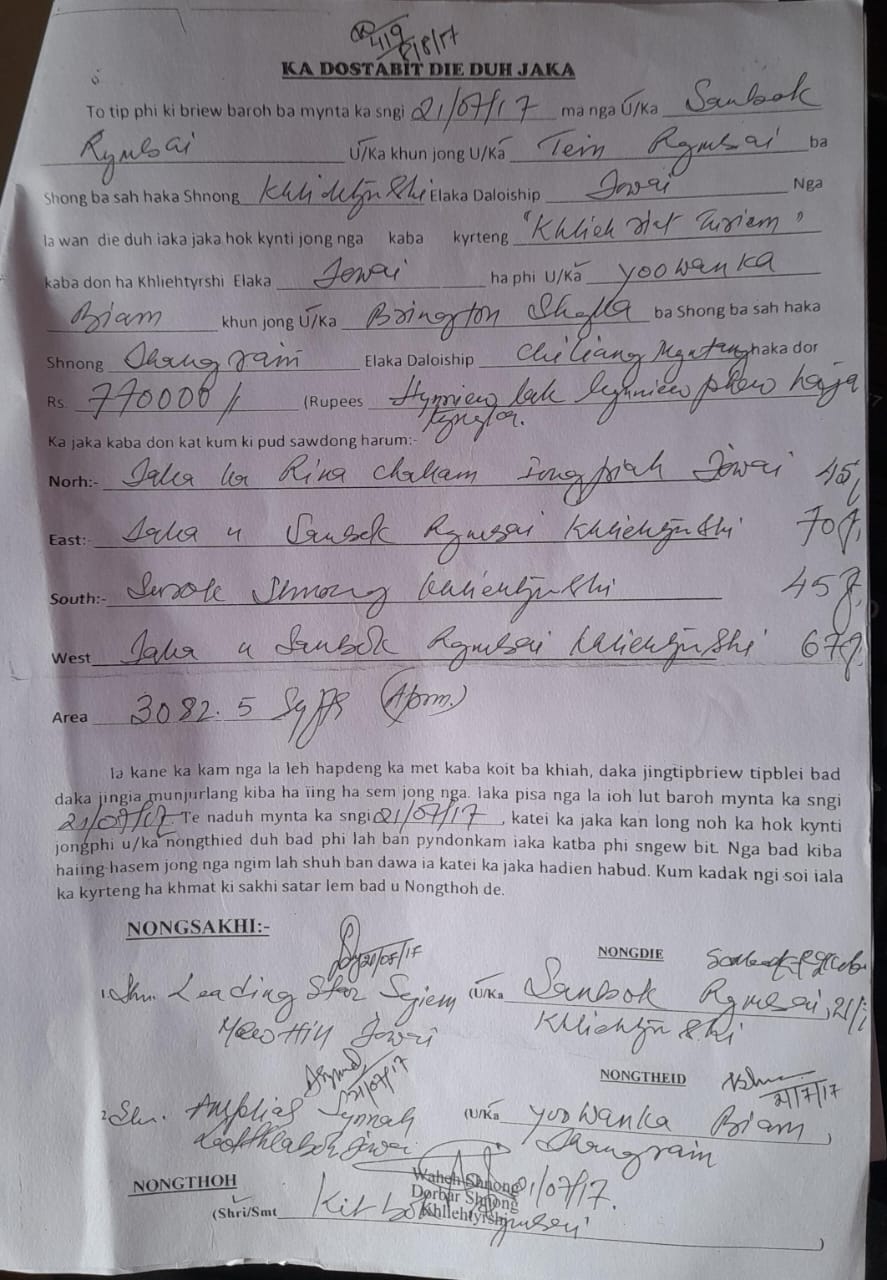 419
KA DOSTABIT DIE DUH JAKA
To tip phi ki briew baroh ba mynta ka sngi 21/07/17 ma nga U/Ka Sanbok
Rymbai U/Ka khun jong U/Ka Tein Rymbai ba
Shong ba sah haka Shnong Khliehtyrshi Elaka Daloiship Jowai Nga
la wan die duh iaka jaka hok kynti jong nga kaba kyrteng "Khlieh
kaba don ha Khliehtyrshi Elaka Jowai ha phi U/Ka yoowanka
Biam khun jong U/Ka Brington Shylla ba Shong ba sah haka
Shnong Shangrain Elaka Daloiship haka dor
Rs. 770000/ (Rupees Hynniew lak hynniew phew hajar
Ka jaka kaba don kat kum ki pud sawdong harum:-
Norh:- Jaka ka Rina Jowai 45
East:- Jaka u Sanbok Rymbai Khliehtyrshi 70
South:- Surok Shnong Khliehtyrshi 45
West Jaka u Sanbok Rymbai Khliehtyrshi 67
Area 3082.5 Sq
Ia kane ka kam nga la leh hapdeng ka met kaba koit ba khiah, daka jingtipbriew tipblei bad
daka jingia munjurlang kiba ha iing ha sem jong nga. Iaka pisa nga la ioh lut baroh mynta ka sngi
21/07/17 Te naduh mynta ka sngi 21/07/17, katei ka jaka kan long noh ka hok kynti
jongphi u/ka nongthied duh bad phi lah ban pyndonkam iaka katba phi sngew bit. Nga bad kiba
haiing hasem jong nga ngim lah shuh ban dawa ia katei ka jaka hadien habud. Kum kadak ngi soi iala
ka kyrteng ha khmat ki sakhi satar lem bad u Nongthoh de.
NONGSAKHI:-
NONGDIE
1. Shri. Leading Star Sejiem
(U/Ka Sanbok Rymbai,
Jowai
Khliehtyrshi
NONGTHEID
21/7/17
2. Shri.
(U/Ka yoowanka Biam,
Shangrain
NONGTHOH
Waheh Shnong
Dorbar Shnong
Khliehtyrshi
21/07/17.
(Shri/Smt )